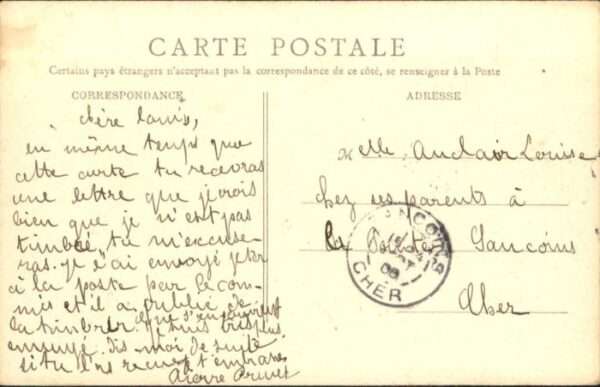 CARTE POSTALE
Certains pays étrangers n'acceptant pas la correspondance de ce côté, se renseigner à la Poste
CORRESPONDANCE
ADRESSE
chère Louise,
en même temps que
cette carte tu recevras
une lettre que je crois
bien que je n'est pas
timbée tu m'excuse-
ras. je l'ai envoyé jeter
à la poste par le com-
mis et il a oublié de
la timbrer
je suis
ennuyé dis moi de suite
si tu l'as recue t'embrasse
Pierre
Melle Auclair Louise
chez ses parents à
la Sancoins
Cher
SANCOINS
CHER